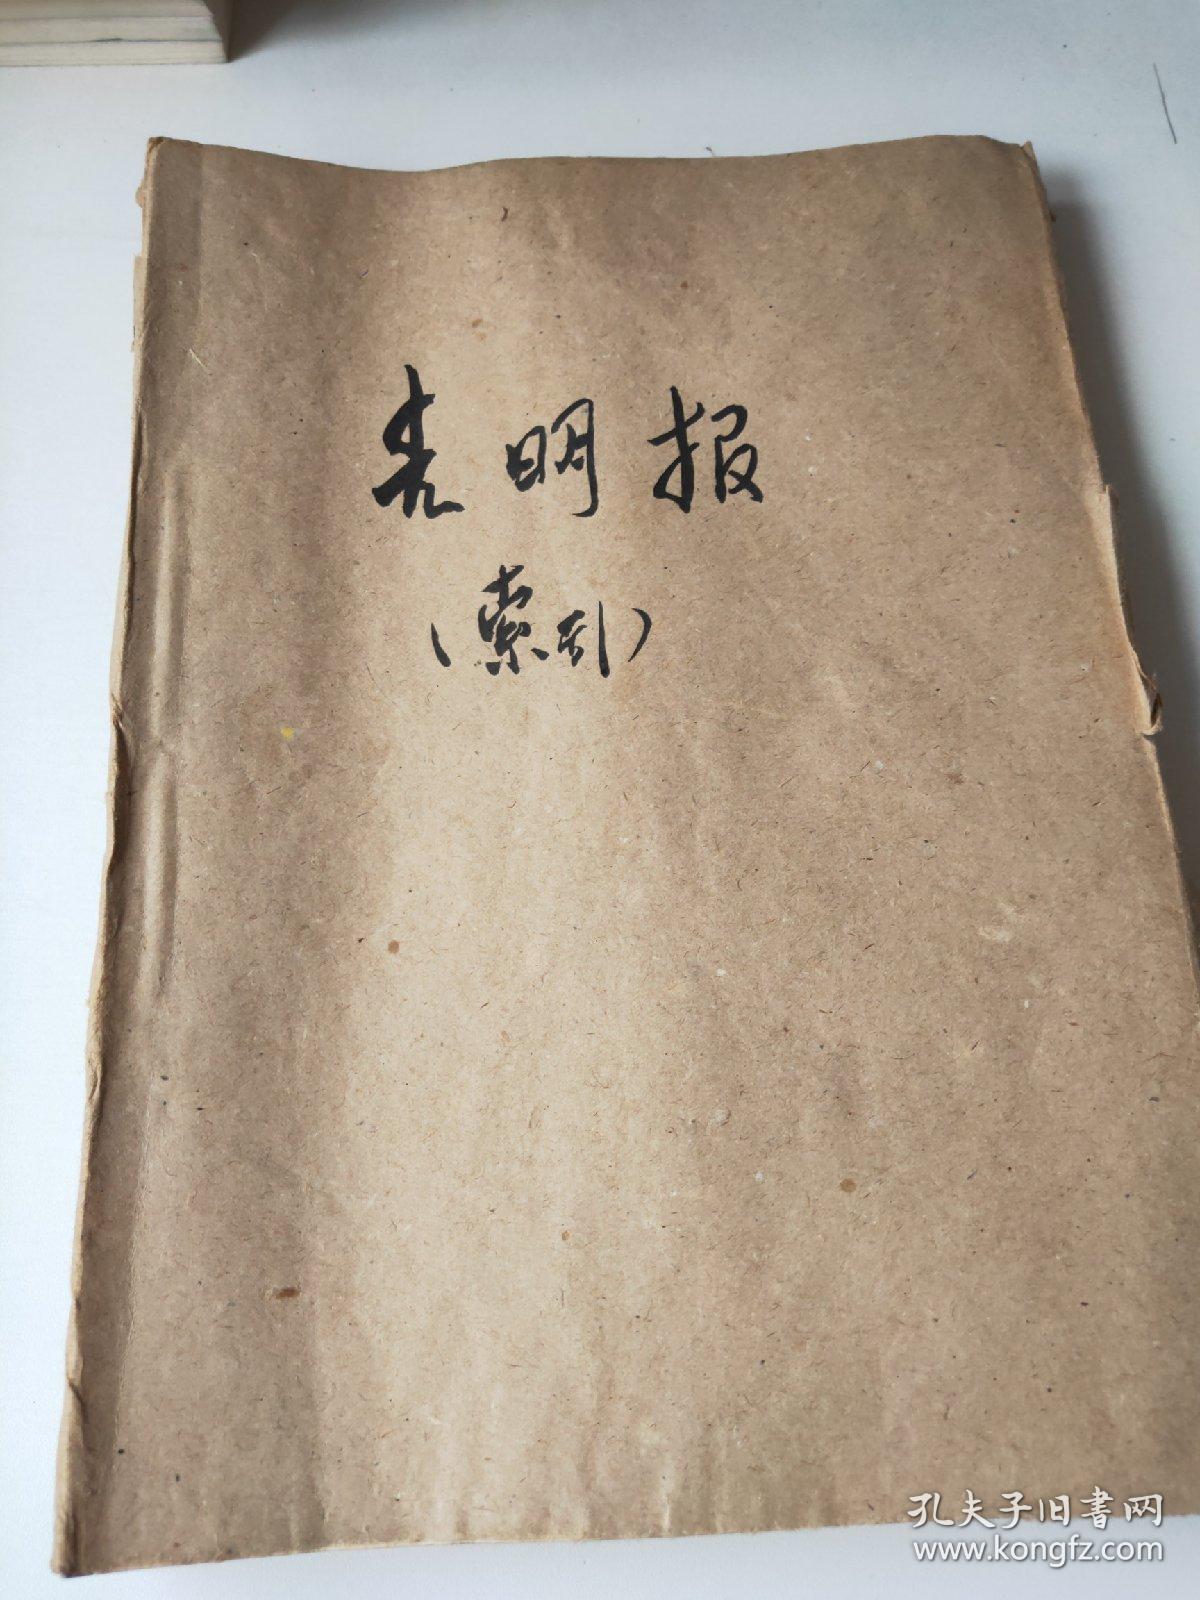 光明报
(索引)
孔夫子旧書网
www.kongfz.com